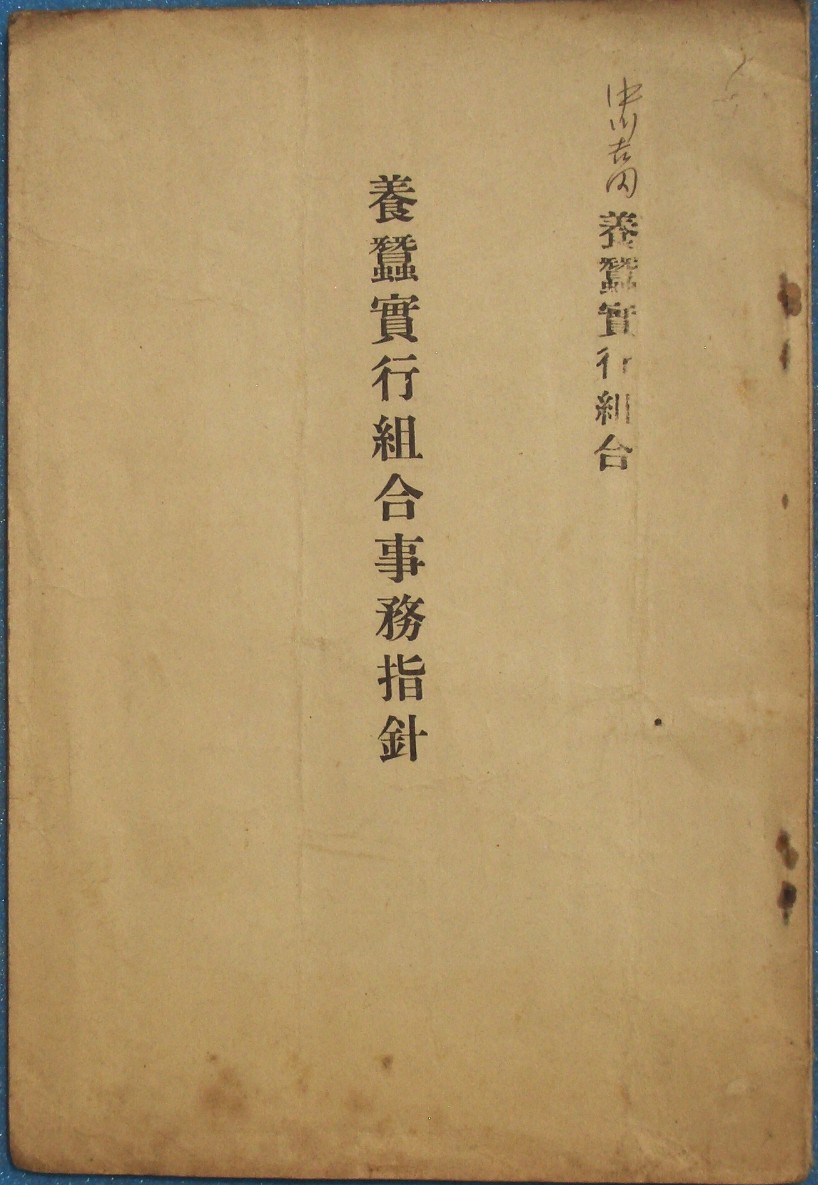 養蠶實行組合
養蠶實行組合事務指針